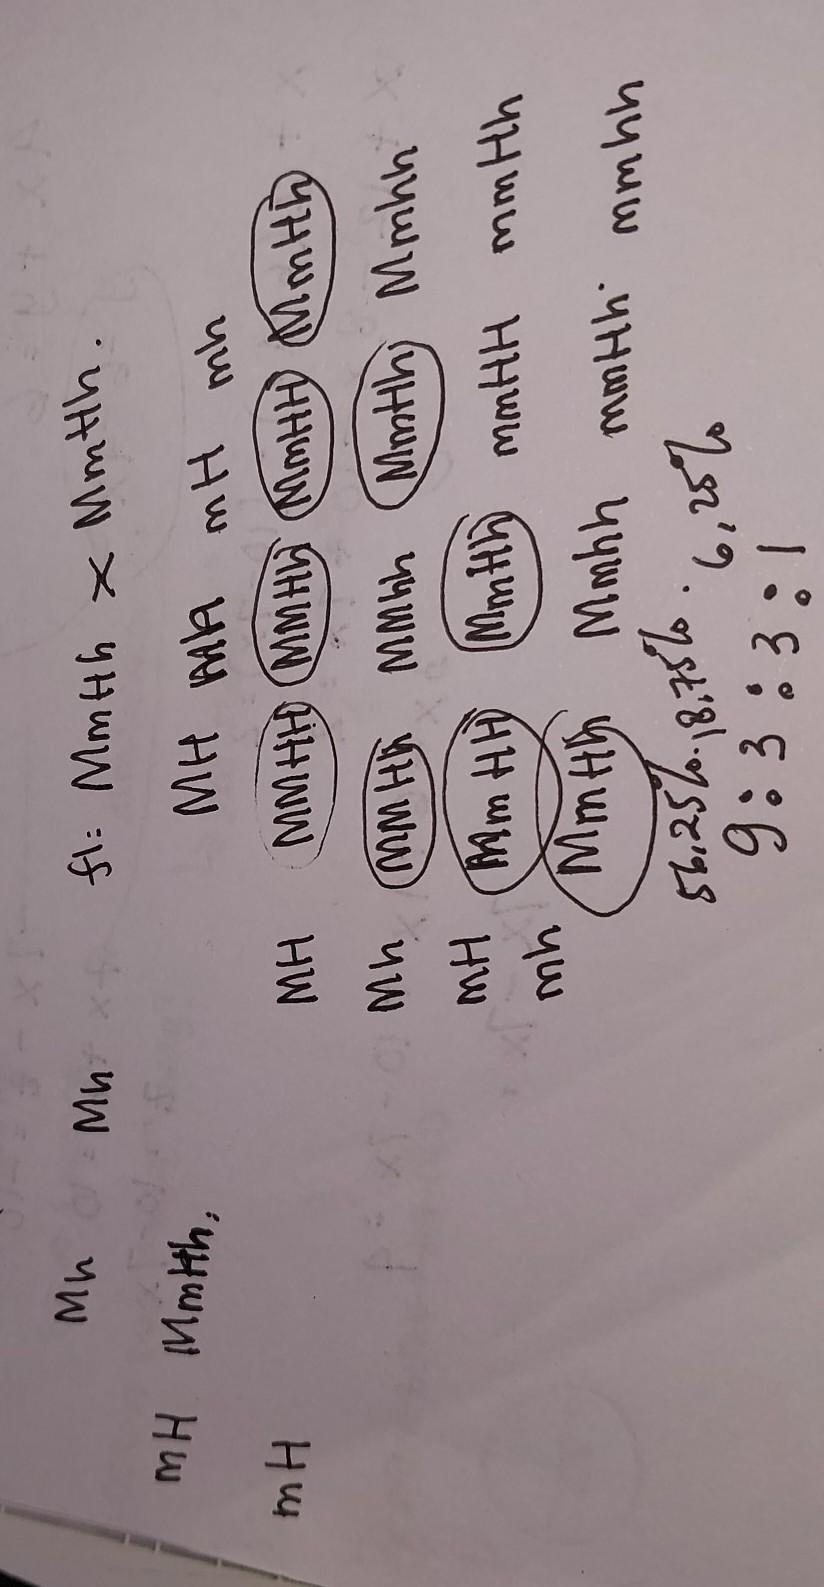 Mh Mh f1: MmHh x MmHh.
mH MmHh, MH Mh mH mh
mH MH MMHH MMHh MmHH MmHh
Mh MMHh MMhh MmHh Mmhh
mH MmHH MmHh mmHH mmHh
mh MmHh Mmhh mmHh. mmhh
56,25%. 18,75%. 6,25%
9 : 3 : 3 : 1